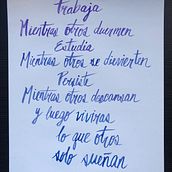 Trabaja
Mientras otros duermen
Estudia
Mientras otros se divierten
Persiste
Mientras otros descansan
y luego vivirás
lo que otros
solo sueñan